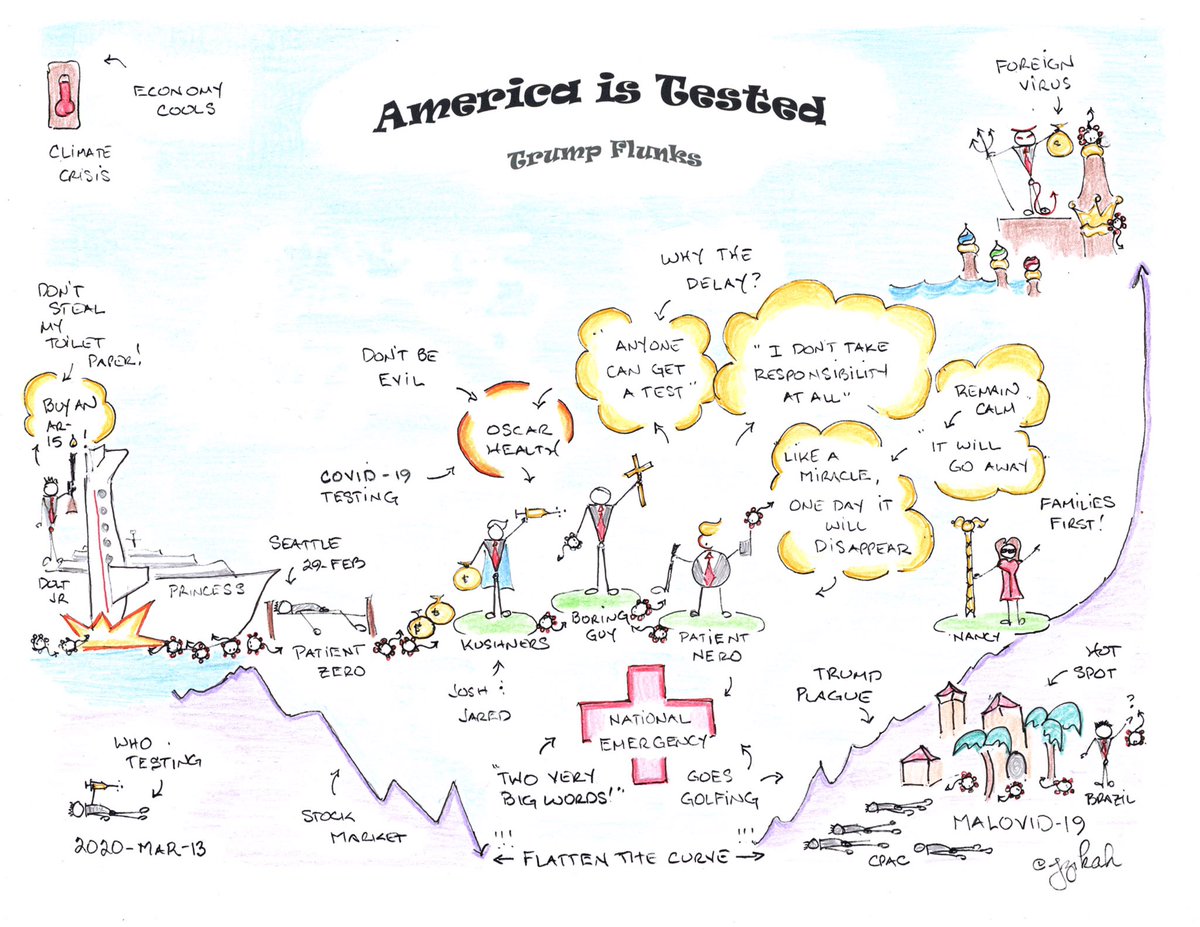 America is Tested
Trump Flunks
ECONOMY
COOLS
CLIMATE
CRISIS
FOREIGN
VIRUS
DON'T
STEAL
MY
TOILET
PAPER!
BUY AN
AR-
15!
DOLT
JR
PRINCESS
SEATTLE
29-FEB
PATIENT
ZERO
DON'T BE
EVIL
OSCAR
HEALTH
COVID-19
TESTING
KUSHNERS
JOSH :
JARED
BORING
GUY
WHY THE
DELAY?
"ANYONE
CAN GET
A TEST"
"I DON'T TAKE
RESPONSIBILITY
AT ALL"
REMAIN
CALM.
"IT WILL
GO AWAY
LIKE A
MIRACLE,
ONE DAY IT
WILL
DISAPPEAR
PATIENT
NERO
FAMILIES
FIRST!
NANCY
NATIONAL
EMERGENCY
"TWO VERY
BIG WORDS!"
GOES
GOLFING
TRUMP
PLAGUE
HOT
SPOT
? ?
BRAZIL
MALOVID-19
CPAC
WHO
TESTING
2020-MAR-13
STOCK
MARKET
!!!
!!!
← FLATTEN THE CURVE →